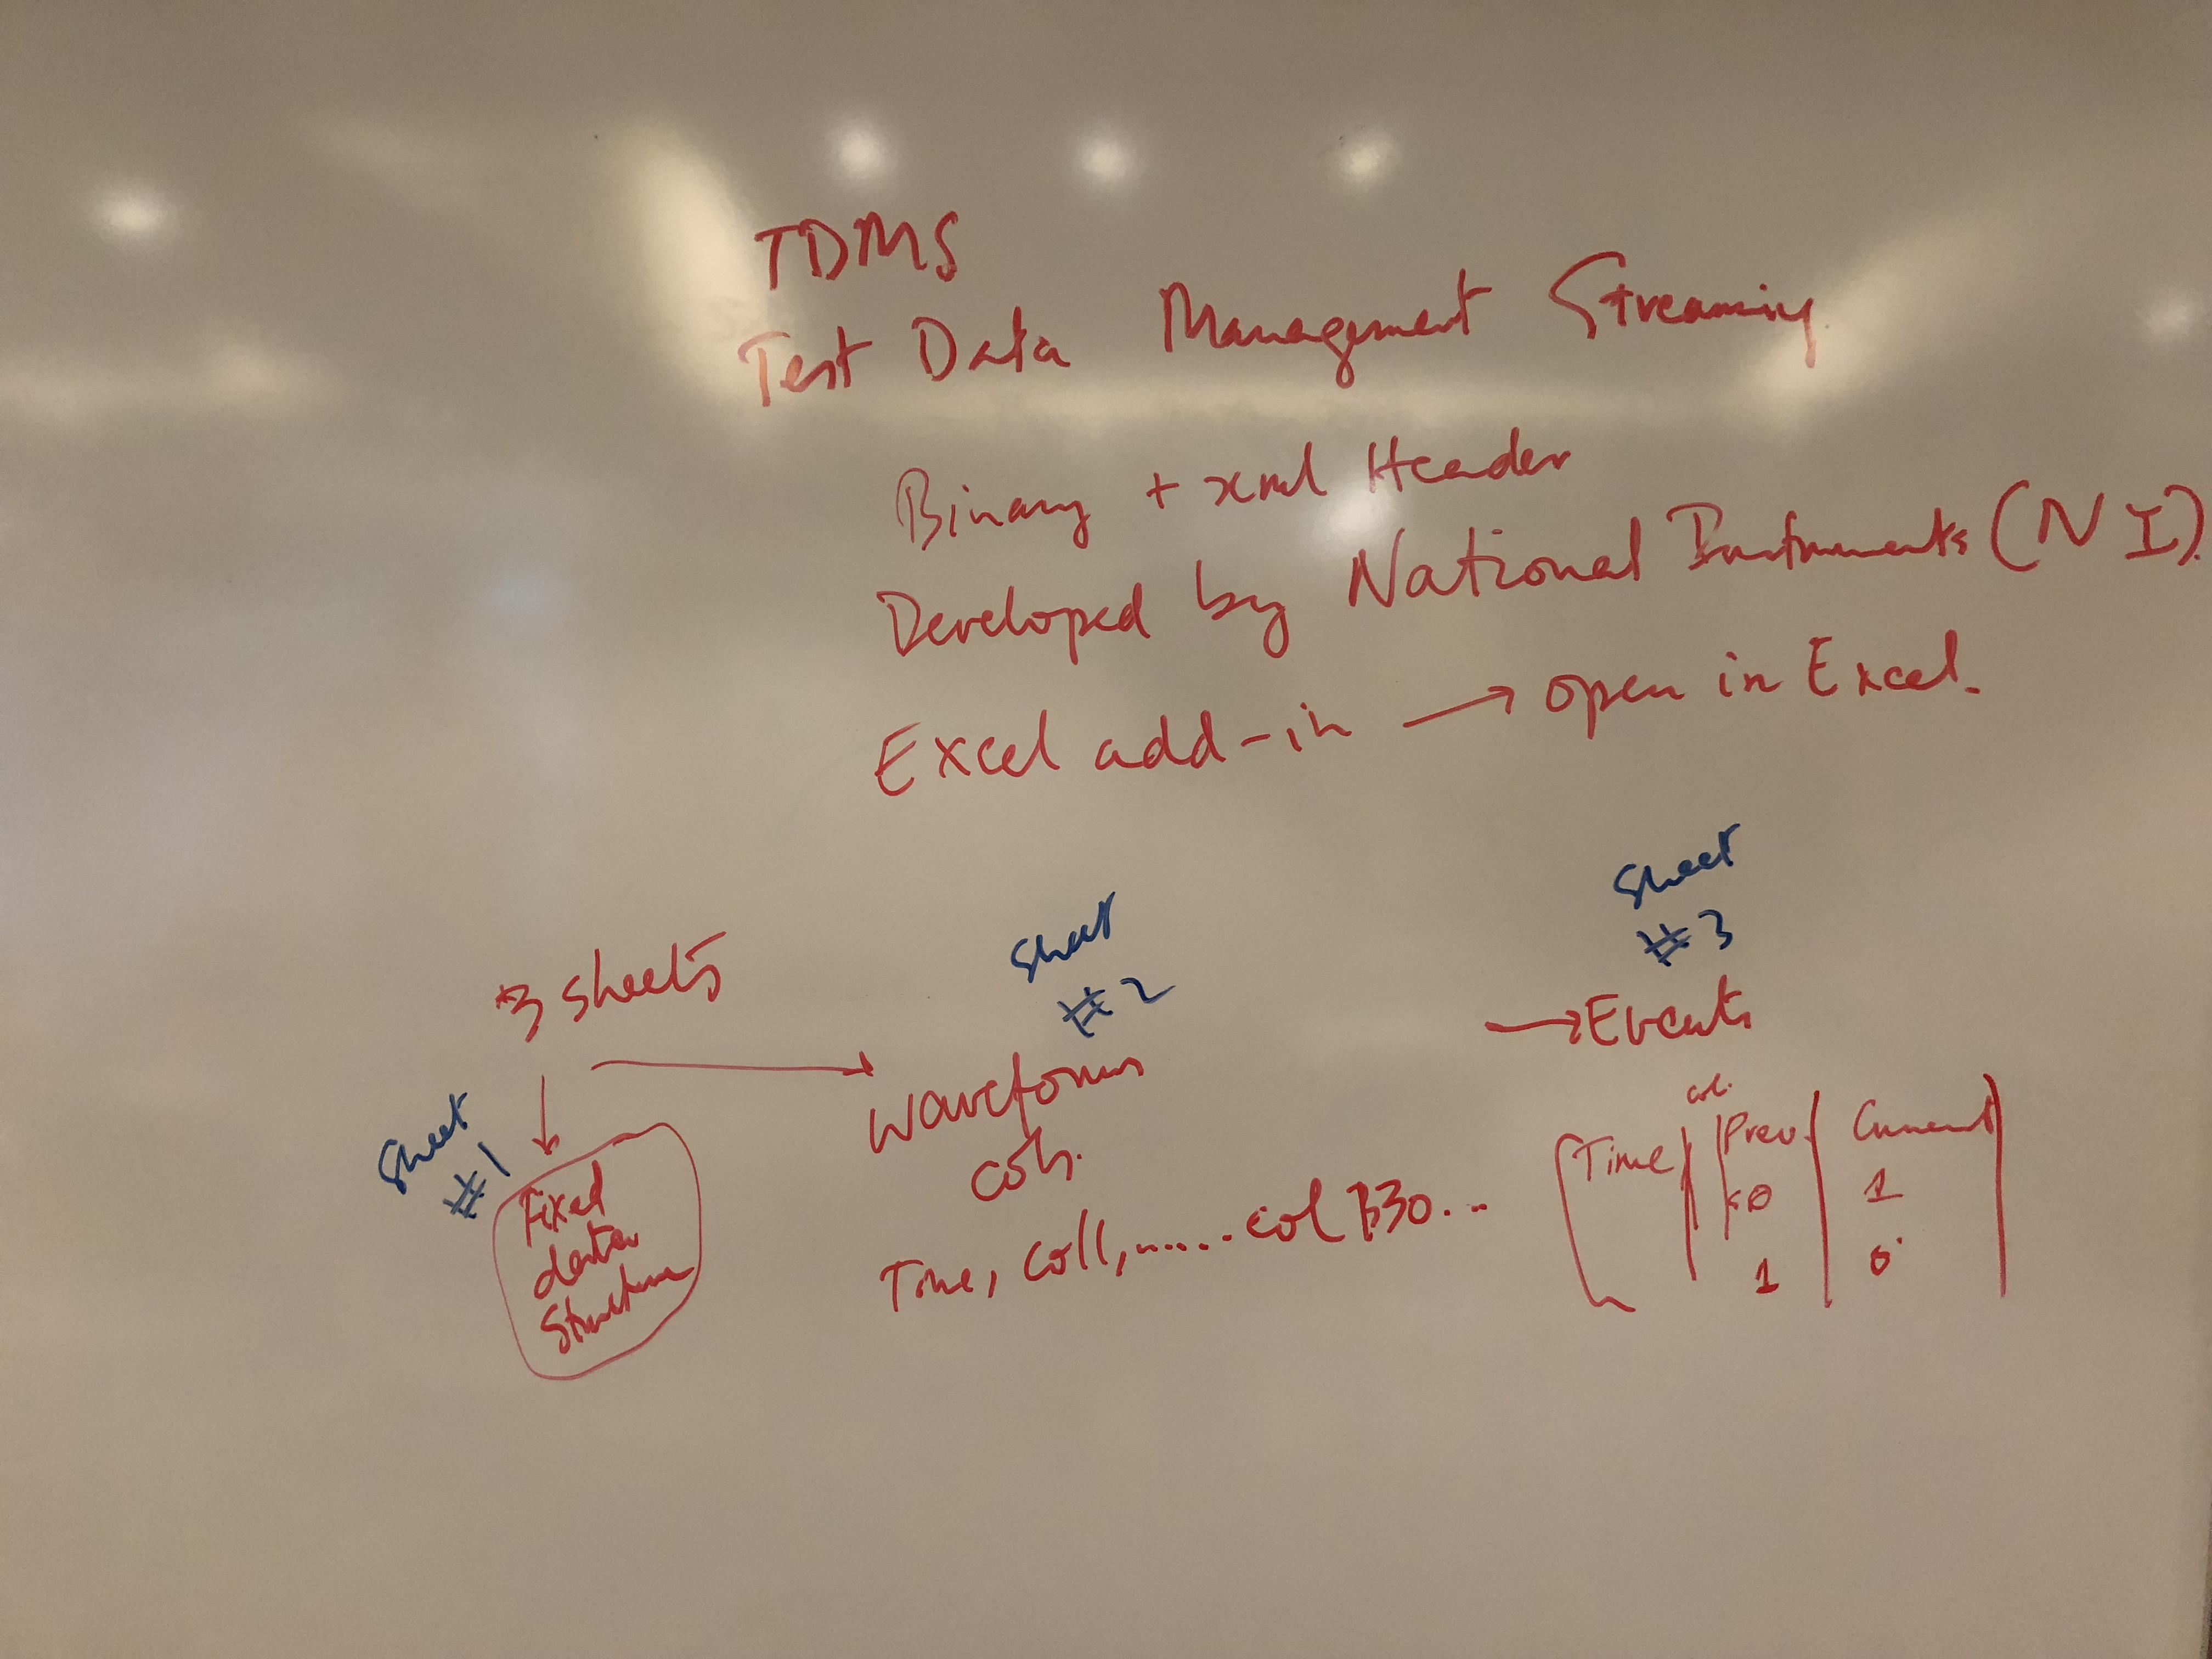 TDMS
Test Data Management Streaming
Binary + xml Header
Developed by National Instruments (NI).
Excel add-in → open in Excel.
3 sheets
Sheet
#1
Fixed
data
Structure
Sheet
#2
Waveforms
cols.
Time, col1, ...... col 30...
Sheet
#3
→ Events
col.
Time | Prev. | Current
0 | 1
1 | 0